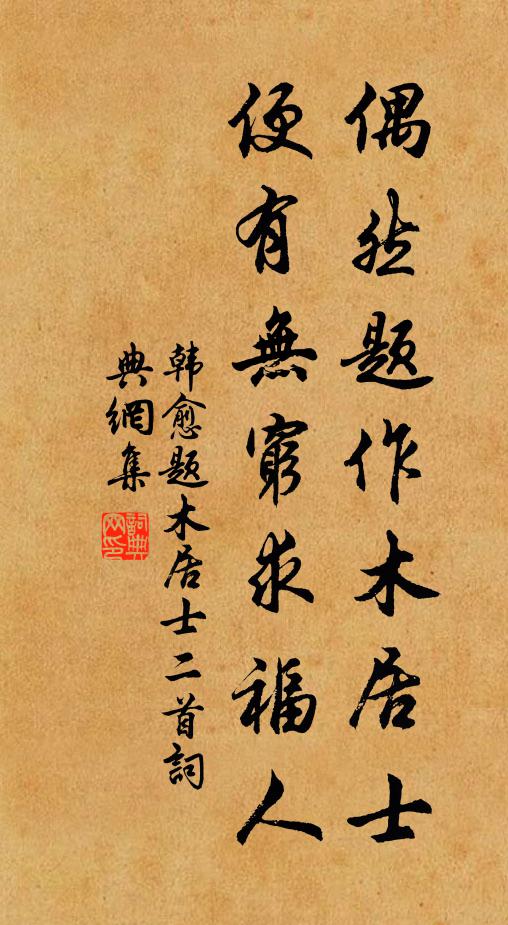 偶然题作木居士
便有無窮求福人
韩愈题木居士二首詞
典網集
詞典
网印